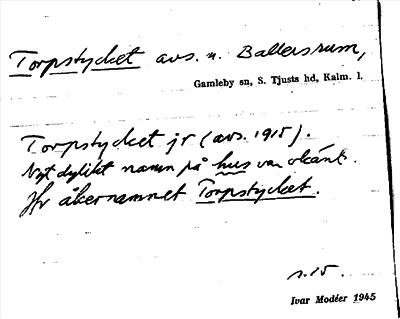 Torpstycket avs. u. Ballersrum,
Gamleby sn, S. Tjusts hd, Kalm. l.
Torpstycket jr (avs. 1915).
Ngt dylikt namn på hus var okänt.
Jfr åkernamnet Torpstycket.
s. 15.
Ivar Modéer 1945